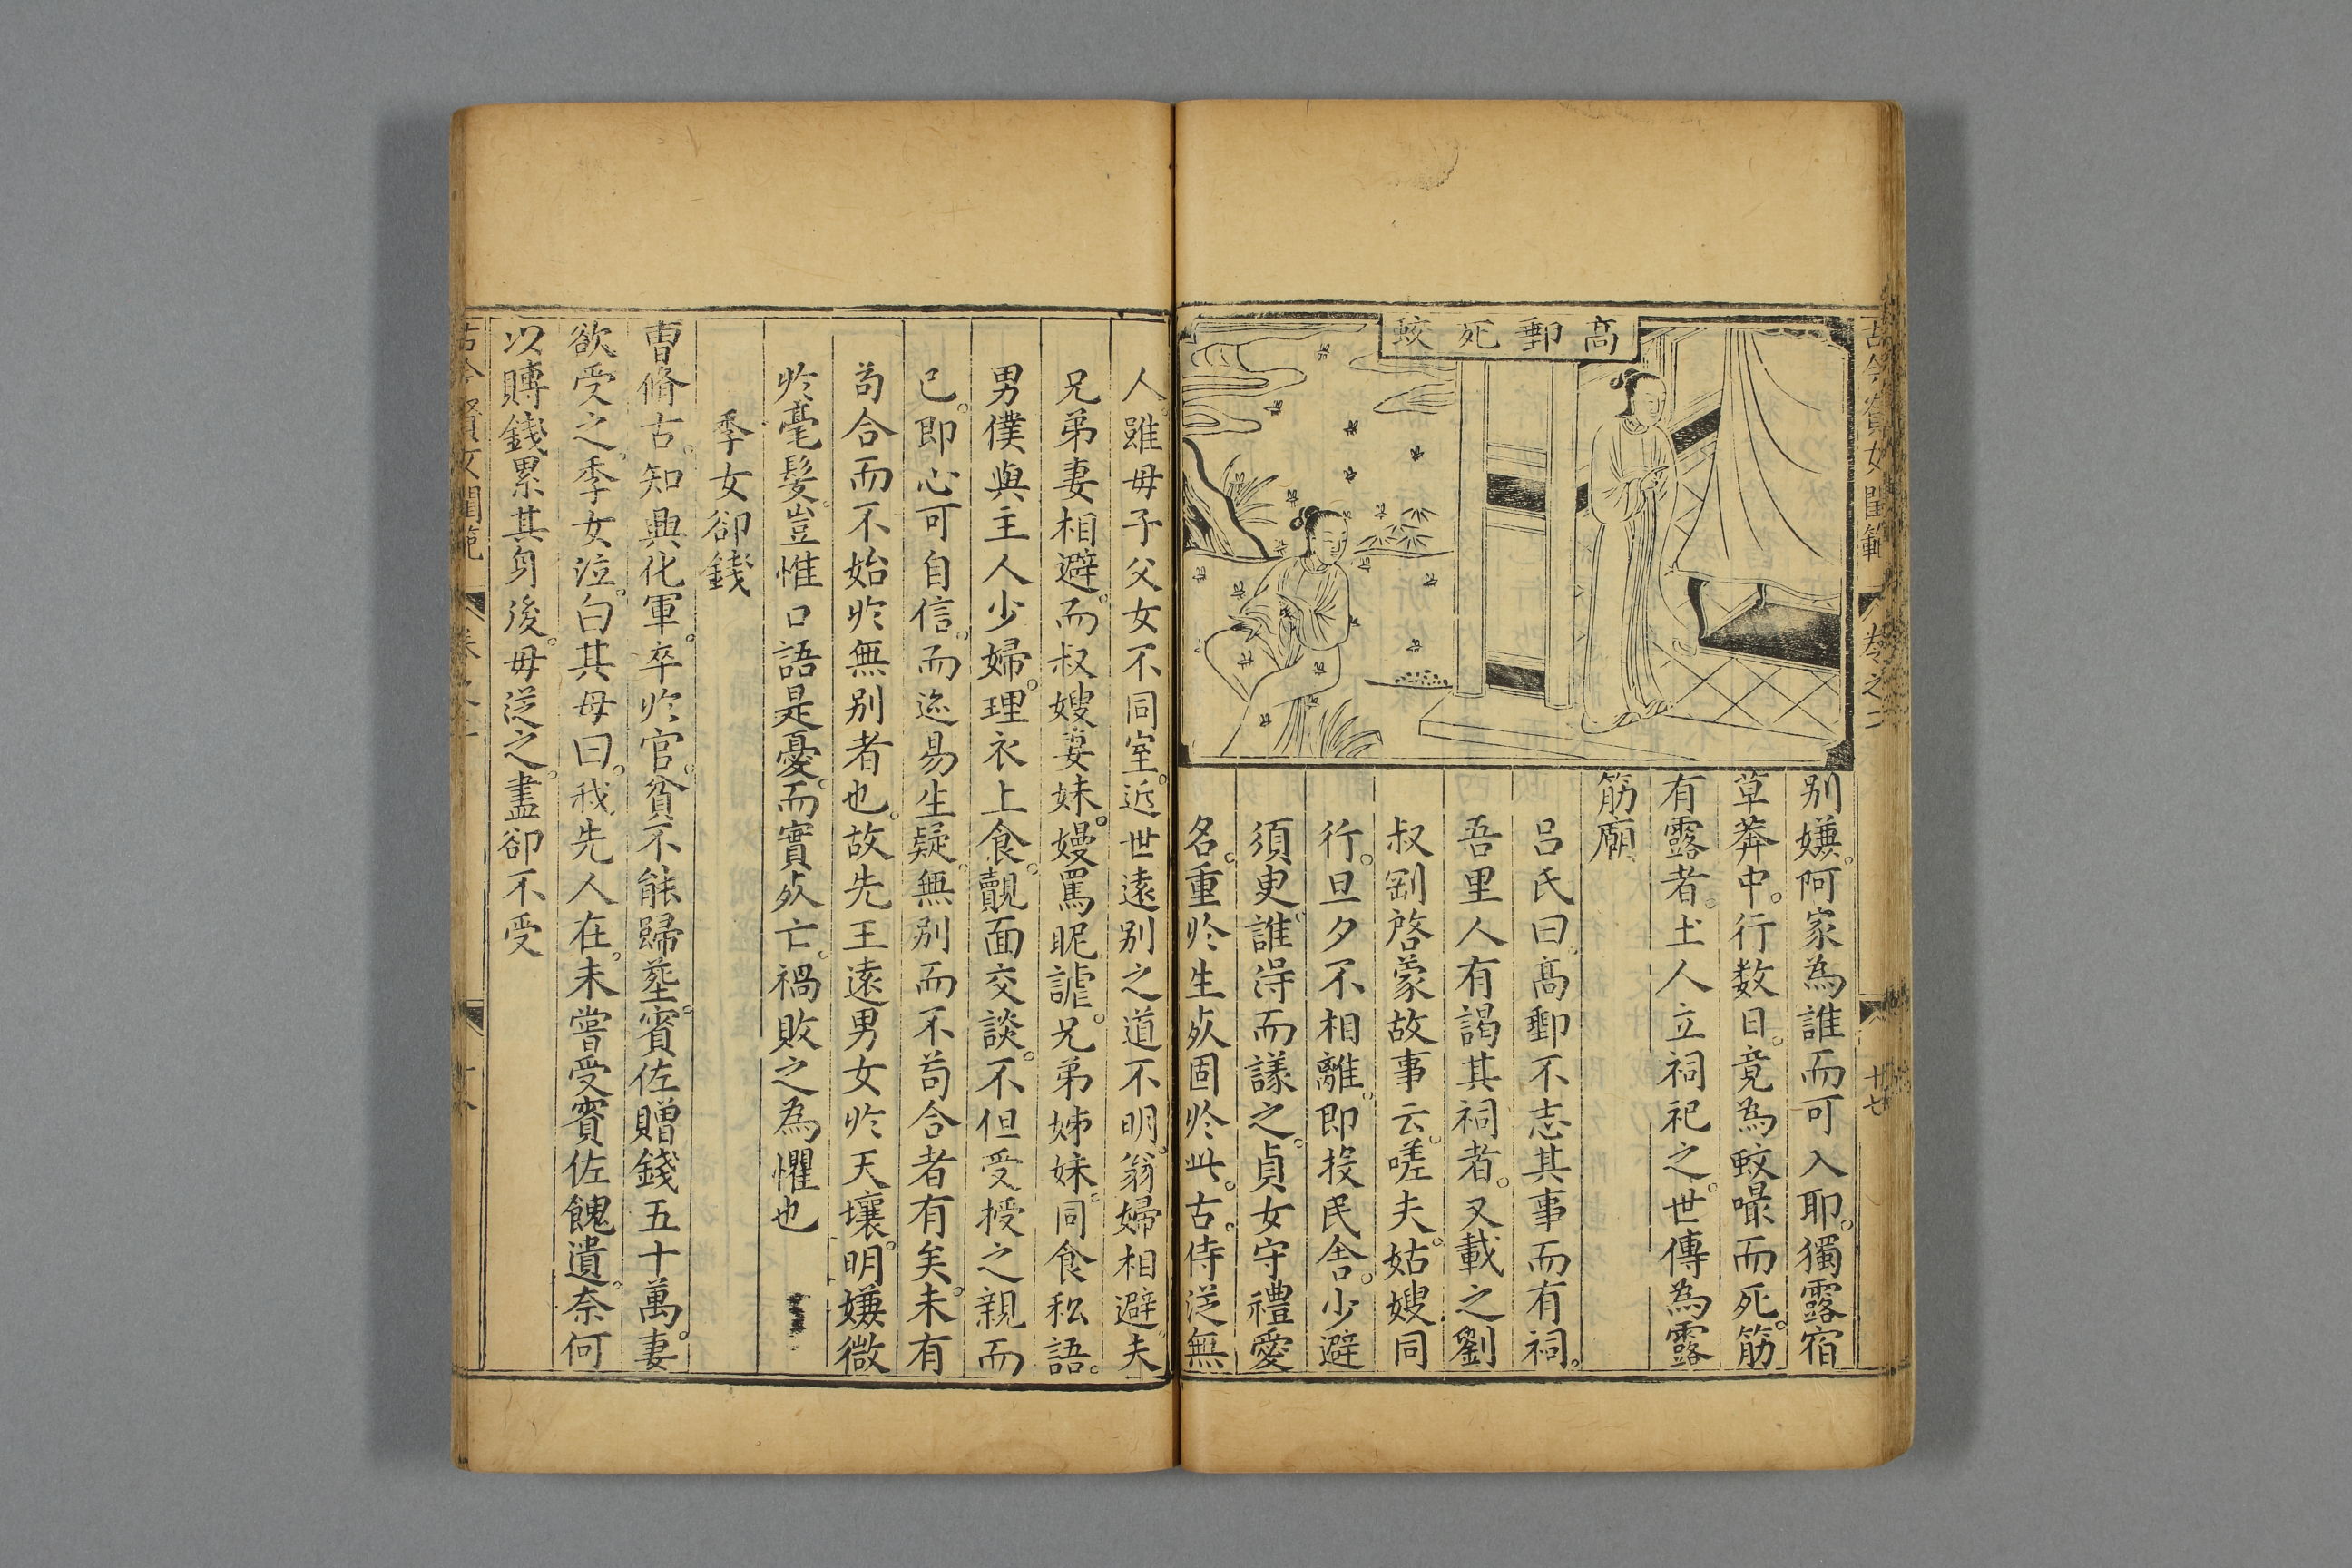 高郵死蛟
別嫌。阿家為誰而可入耶。獨露宿
草莽中。行数日。竟為蛟嘬而死。筋
有露者。土人立祠祀之。世傳為露
筋廟。
呂氏曰。高郵不志其事而有祠。
吾里人有謁其祠者。又載之劉
叔剛啓蒙故事云。嗟夫。姑嫂同
行。旦夕不相離。即投民舍。少避
須臾。誰得而議之。貞女守禮愛
名。重於生。死固於此。古。侍從無
人。雖母子父女不同室。近世遠別之道不明。翁婦相避。夫
兄弟妻相避。而叔嫂妻妹。嫚罵昵謔。兄弟姊妹。同食私語。
男僕與主人少婦。理衣上食。覿面交談。不但受授之親而
已。即心可自信。而迹易生疑。無別而不苟合者有矣。未有
苟合而不始於無別者也。故先王遠男女於天壤。明嫌微
於毫髮。豈惟口語是憂。而實死亡。禍敗之為懼也
季女卻錢
曹脩古。知興化軍。卒於官。貧不能歸塟。賓佐贈錢五十萬。妻
欲受之。季女泣。白其母曰。我先人在。未嘗受賓佐餽遺。奈何
以賻錢累其身後。母從之。盡卻不受
古今賢女閨範
卷之二
十七